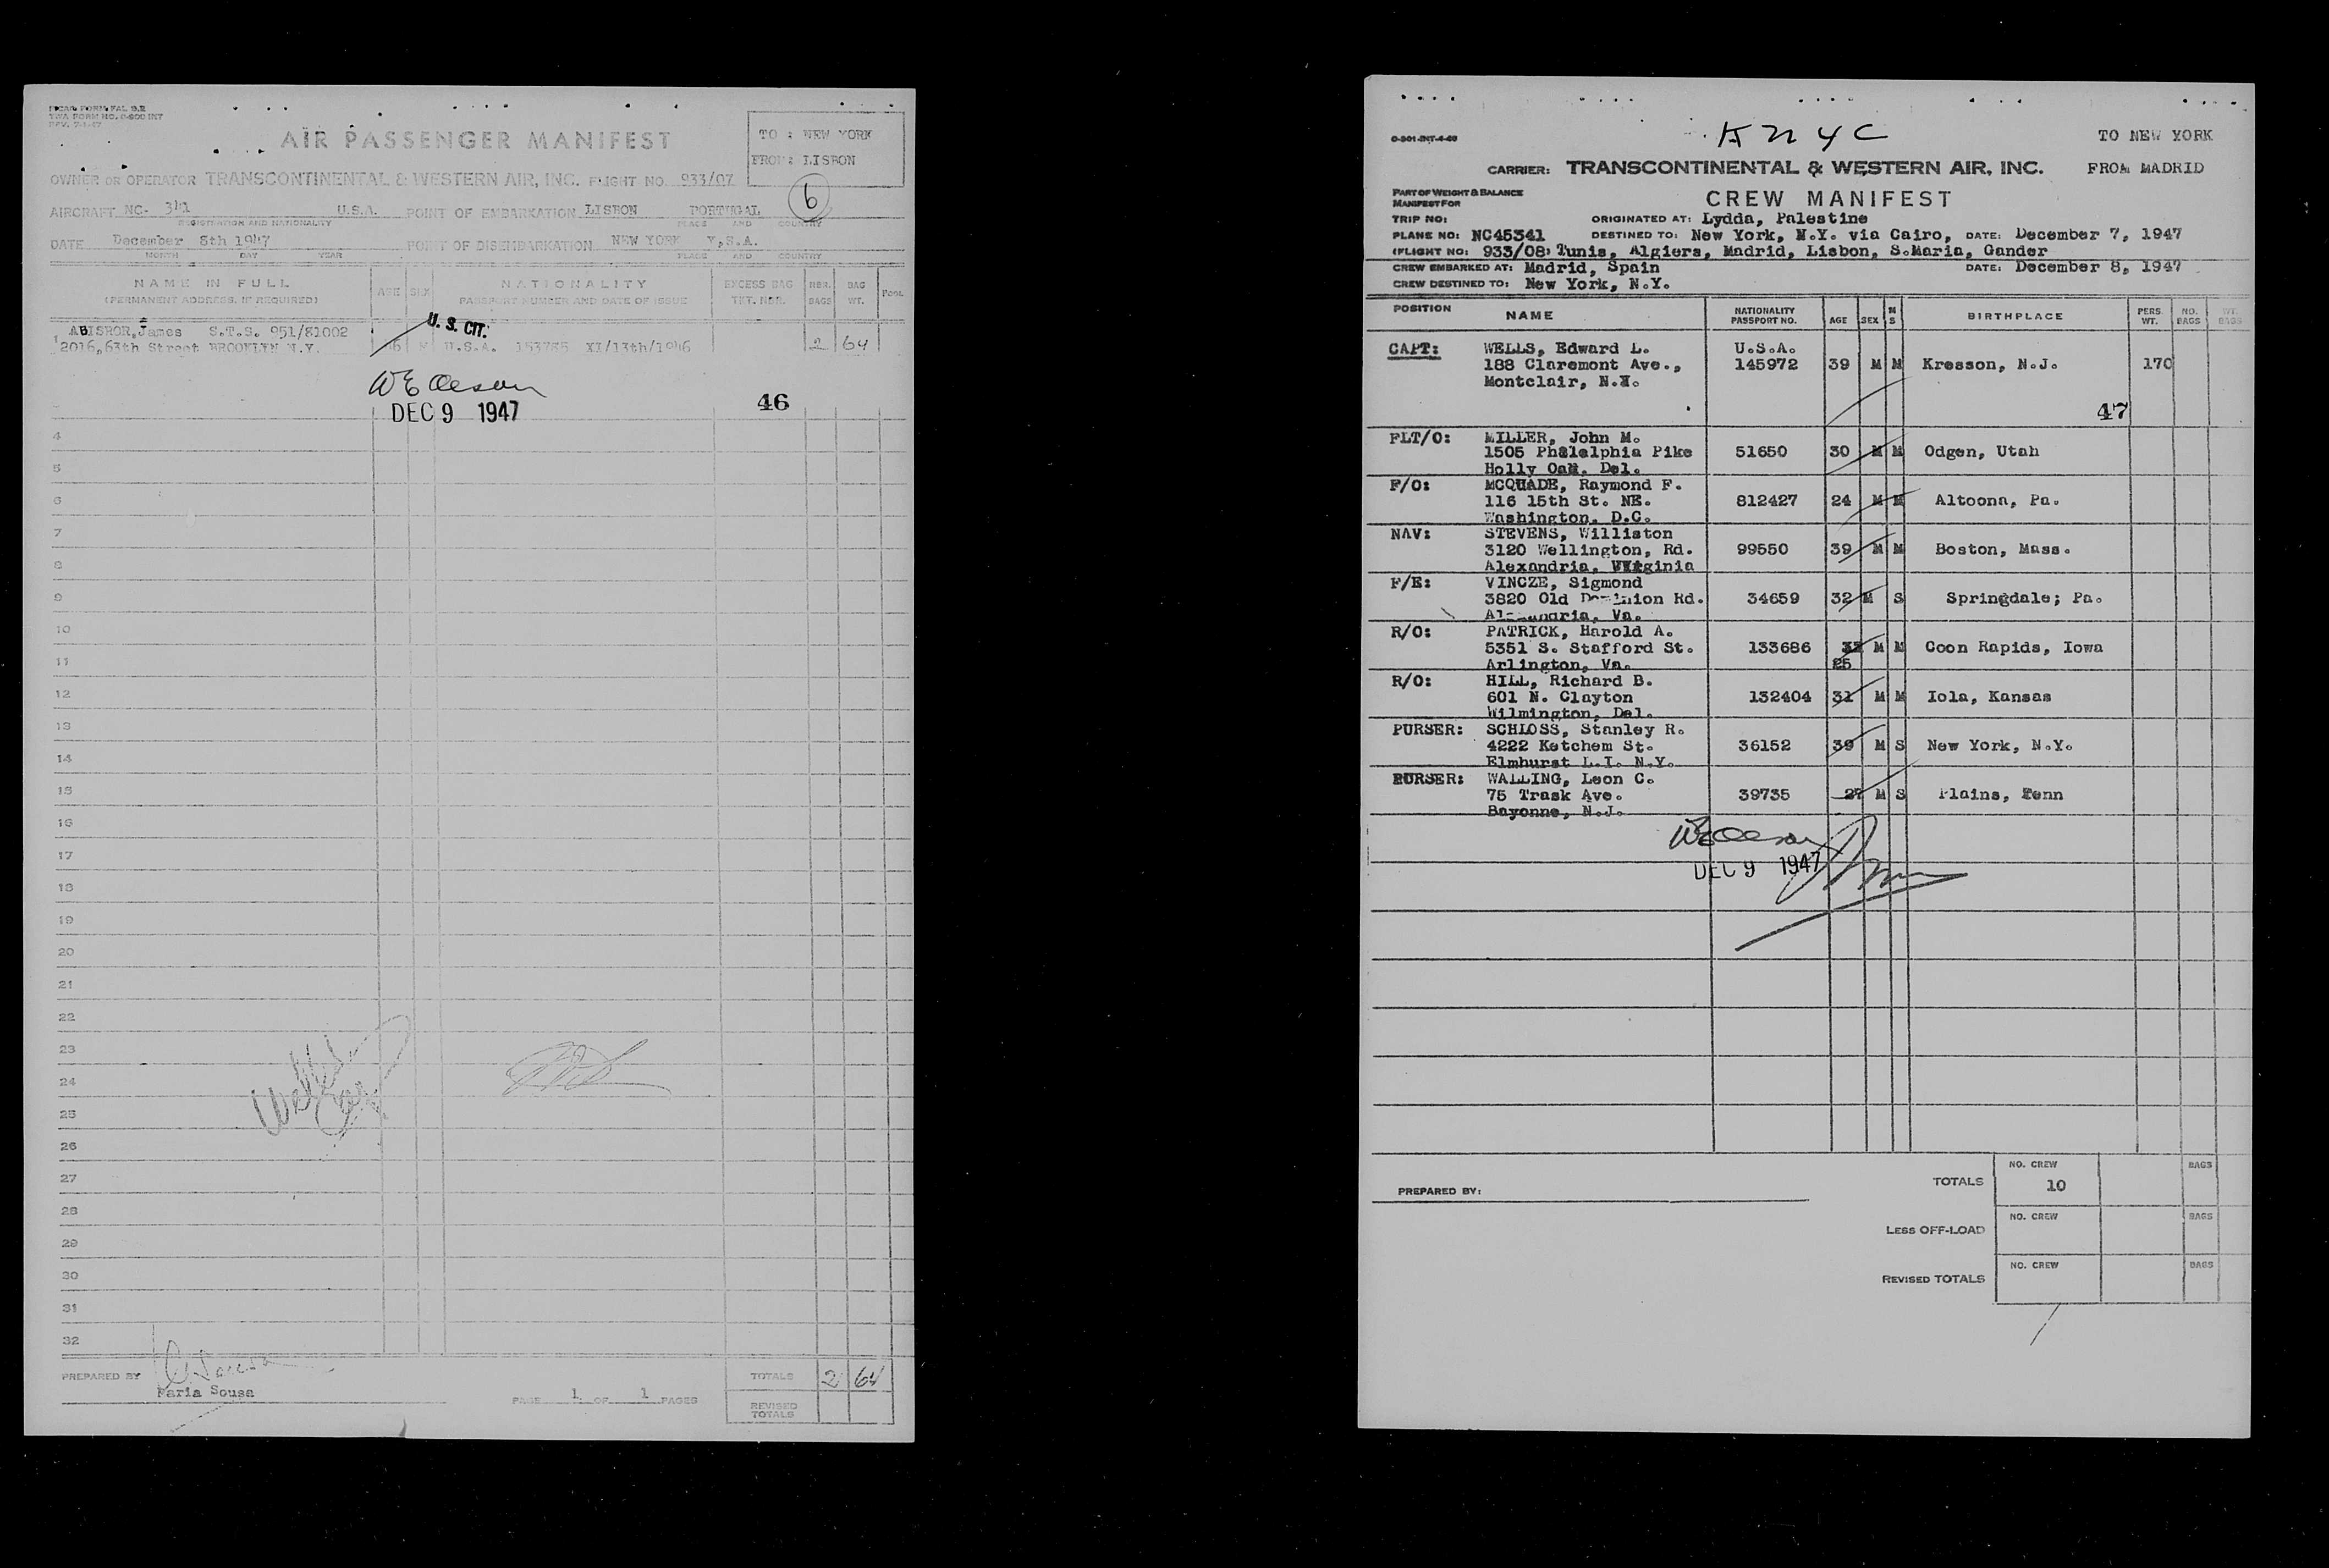 ICAO FORM FAL B.2
TWA FORM NO. 0-800 INT
REV. 7-1-47
AIR PASSENGER MANIFEST
TO : NEW YORK
FROM: LISBON
OWNER OR OPERATOR TRANSCONTINENTAL & WESTERN AIR, INC. FLIGHT NO. 933/07
6
AIRCRAFT NC- 341 U.S.A. POINT OF EMBARKATION LISBON PORTUGAL
REGISTRATION AND NATIONALITY PLACE AND COUNTRY
DATE December 8th 1947 POINT OF DISEMBARKATION NEW YORK
MONTH DAY YEAR PLACE AND COUNTRY
NAME IN FULL AGE SEX NATIONALITY EXCESS BAG NBR. BAG POOL
(PERMANENT ADDRESS, IF REQUIRED) PASSPORT NUMBER AND DATE OF ISSUE TKT. NBR. BAGS WT.
U. S. CIT.
1 ABISROR,James S.T.S. 951/81002
2016,63th Street BROOKLYN N.Y. M U.S.A. 153785 XI/13th/1946 2 64
DEC 9 1947 46
4
5
6
7
8
9
10
11
12
13
14
15
16
17
18
19
20
21
22
23
24
25
26
27
28
29
30
31
32
PREPARED BY
Faria Sousa
PAGE 1 OF 1 PAGES
TOTALS 2 64
REVISED TOTALS
K N Y C
TO NEW YORK
CARRIER: TRANSCONTINENTAL & WESTERN AIR, INC. FROM MADRID
PART OF WEIGHT & BALANCE
MANIFEST FOR
CREW MANIFEST
TRIP NO: ORIGINATED AT: Lydda, Palestine
PLANE NO: NC45341 DESTINED TO: New York, N.Y. via Cairo, DATE: December 7, 1947
(FLIGHT NO: 933/08) Tunis, Algiers, Madrid, Lisbon, S.Maria, Gander
CREW EMBARKED AT: Madrid, Spain DATE: December 8, 1947
CREW DESTINED TO: New York, N.Y.
POSITION NAME NATIONALITY PASSPORT NO. AGE SEX M S BIRTHPLACE PERS. WT. NO. BAGS WT. BAGS
CAPT: WELLS, Edward L. U.S.A.
188 Claremont Ave., 145972 39 M M Kresson, N.J. 170
Montclair, N.J.
47
FLT/O: MILLER, John M.
1505 Phalelphia Pike 51650 30 M M Odgen, Utah
Holly Oak, Del.
F/O: MCQUADE, Raymond F.
116 15th St. NE. 812427 24 M M Altoona, Pa.
Washington, D.C.
NAV: STEVENS, Williston
3120 Wellington, Rd. 99550 39 M M Boston, Mass.
Alexandria, Virginia
F/E: VINCZE, Sigmond
3820 Old Dominion Rd. 34659 32 M S Springdale; Pa.
Alexandria, Va.
R/O: PATRICK, Harold A.
5351 S. Stafford St. 133686 M M Coon Rapids, Iowa
Arlington, Va. 25
R/O: HILL, Richard B.
601 N. Clayton 132404 31 M M Iola, Kansas
Wilmington, Del.
PURSER: SCHLOSS, Stanley R.
4222 Ketchem St. 36152 39 M S New York, N.Y.
Elmhurst L.I. N.Y.
PURSER: WALLING, Leon C.
75 Trask Ave. 39735 27 M S Plains, Penn
Bayonne, N.J.
DEC 9 1947
PREPARED BY:
TOTALS NO. CREW 10 BAGS
LESS OFF-LOAD NO. CREW BAGS
REVISED TOTALS NO. CREW BAGS